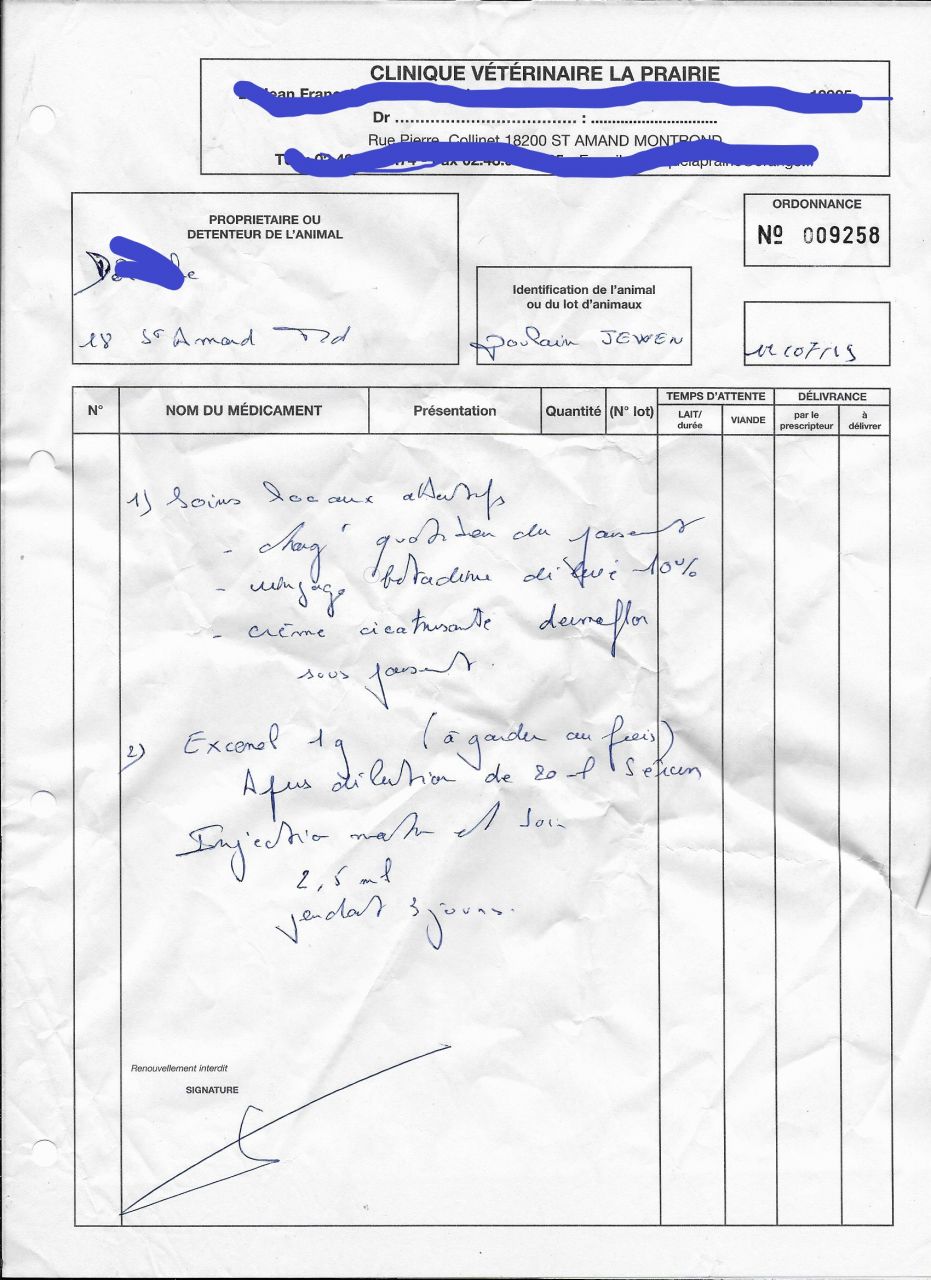 CLINIQUE VÉTÉRINAIRE LA PRAIRIE
Dr .................................. : ..............................
Rue Pierre Collinet 18200 ST AMAND MONTROND
PROPRIETAIRE OU
DETENTEUR DE L'ANIMAL
18 St Amand
Identification de l'animal
ou du lot d'animaux
poulain JEWEN
ORDONNANCE
Nº 009258
N°
NOM DU MÉDICAMENT
Présentation
Quantité
(N° lot)
TEMPS D'ATTENTE
LAIT/
durée
VIANDE
DÉLIVRANCE
par le
prescripteur
à
délivrer
1) Soins locaux attentifs
- quotidien du pansent
- rinçage betadine dilué 10%
- crème cicatrisante dermaflor
sous pansent.
2) Excenel 1g (à garder au frais)
Apres dilution de 20 ml Serum
Injection matin et soir
2,5 ml
pendant 3 jours.
Renouvellement interdit
SIGNATURE